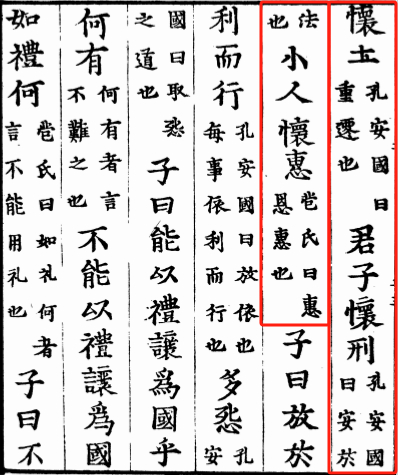 懷土孔安國曰重遷也君子懷刑孔安國曰安扵
法也小人懷惠苞氏曰惠恩惠也子曰放扵
利而行孔安國曰放依也每事依利而行也多怨孔安
國曰取怨之道也子曰能以禮讓爲國乎
何有何有者言不難之也不能以禮讓爲國
如禮何苞氏曰如礼何者言不能用礼也子曰不